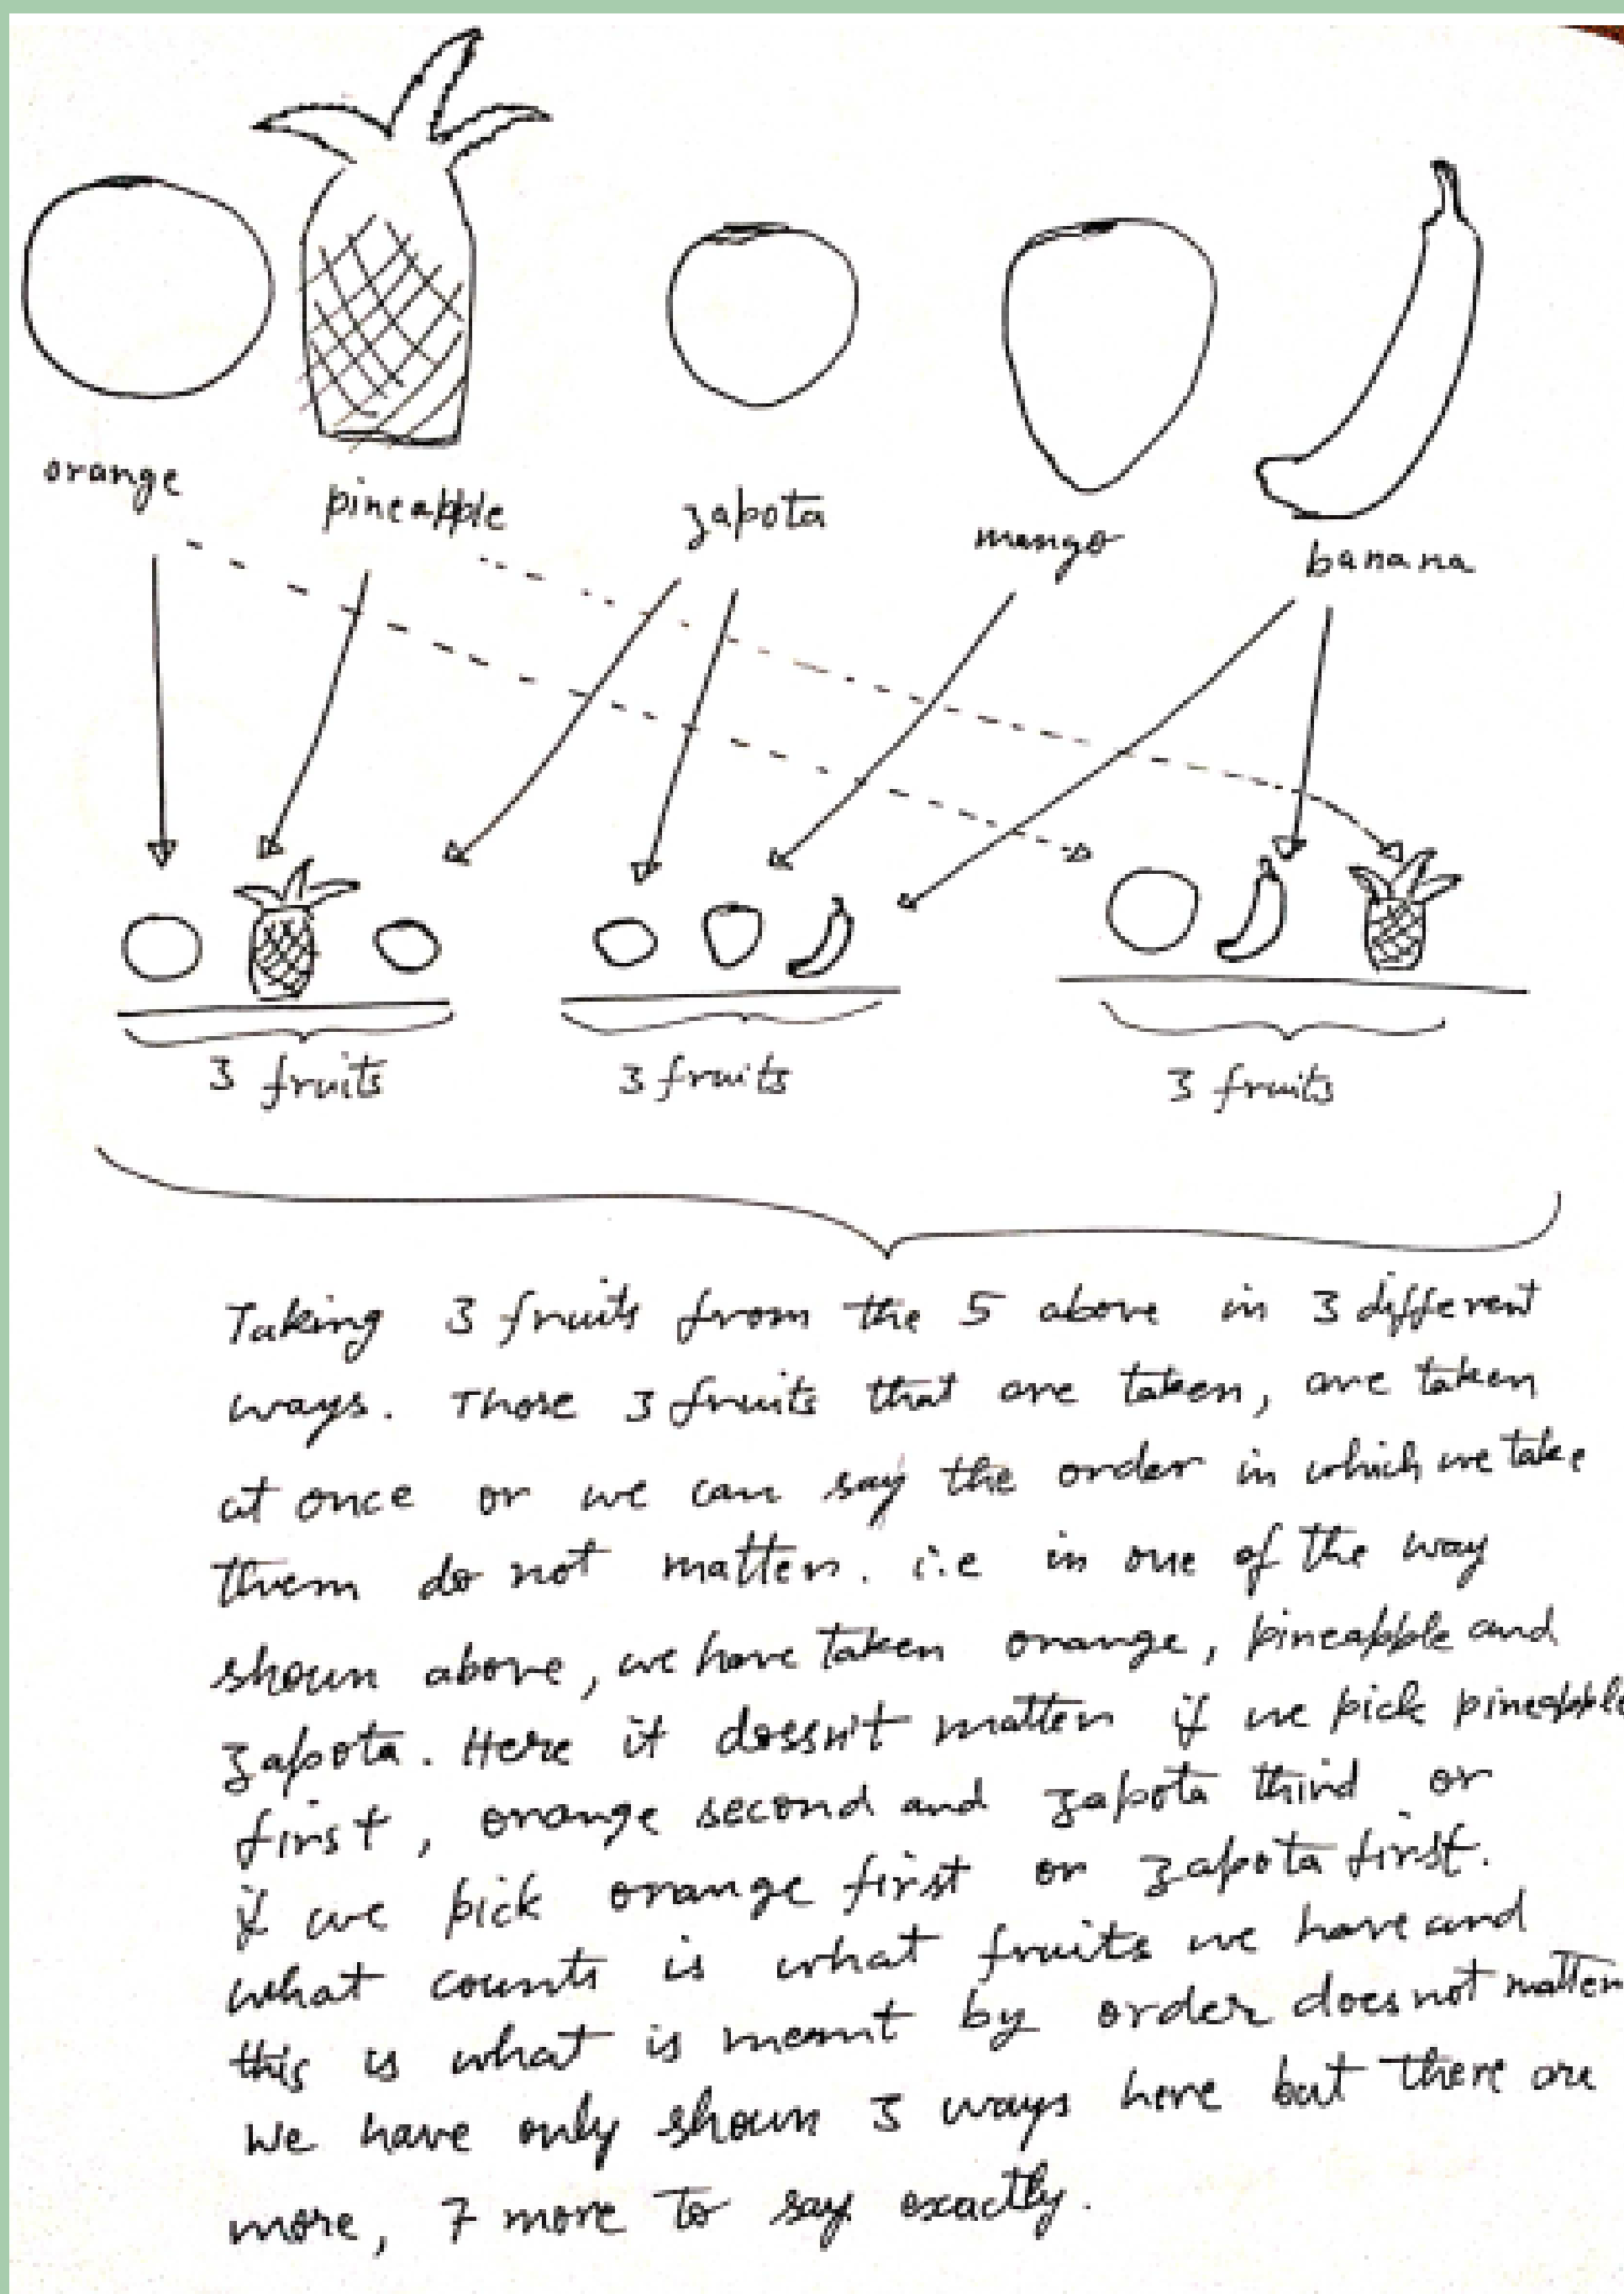 orange
pineapple
zapota
mango
banana
3 fruits
3 fruits
3 fruits
Taking 3 fruits from the 5 above in 3 different
ways. Those 3 fruits that are taken, are taken
at once or we can say the order in which we take
them do not matter. i.e in one of the way
shown above, we have taken orange, pineapple and
zapota. Here it doesn't matter if we pick pineapple
first, orange second and zapota third or
if we pick orange first or zapota first.
what counts is what fruits we have and
this is what is meant by order does not matter
We have only shown 3 ways here but there are
more, 7 more to say exactly.